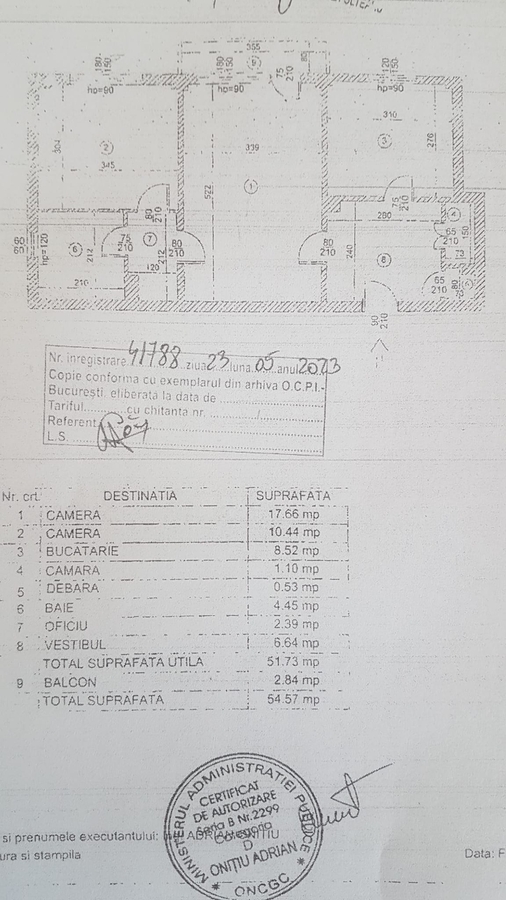 355
180
150
180
150
9
80
75
210
120
150
hp=90
hp=90
hp=90
304
2
345
339
310
3
276
1
522
75
210
280
4
150
65
210
73
60
60
hp=120
6
212
75
210
7
80
210
80
210
212
120
210
80
210
240
8
65
210
80
5
90
210
Nr. inregistrare 41788 ziua 23 luna 05 anul 2023
Copie conforma cu exemplarul din arhiva O.C.P.I.-
Bucuresti, eliberata la data de ..............
Tariful........ cu chitanta nr. ........../..........
Referent
L.S. ..........
Nr. crt. DESTINATIA SUPRAFATA
1 CAMERA 17.66 mp
2 CAMERA 10.44 mp
3 BUCATARIE 8.52 mp
4 CAMARA 1.10 mp
5 DEBARA 0.53 mp
6 BAIE 4.45 mp
7 OFICIU 2.39 mp
8 VESTIBUL 6.64 mp
TOTAL SUPRAFATA UTILA 51.73 mp
9 BALCON 2.84 mp
TOTAL SUPRAFATA 54.57 mp
MINISTERUL ADMINISTRATIEI PUBLICE
CERTIFICAT
DE AUTORIZARE
Seria B Nr.2299
Categoria
D
ONIȚIU ADRIAN
* ONCGC *
si prenumele executantului: ADRIAN ONITIU
ura si stampila
Data: F